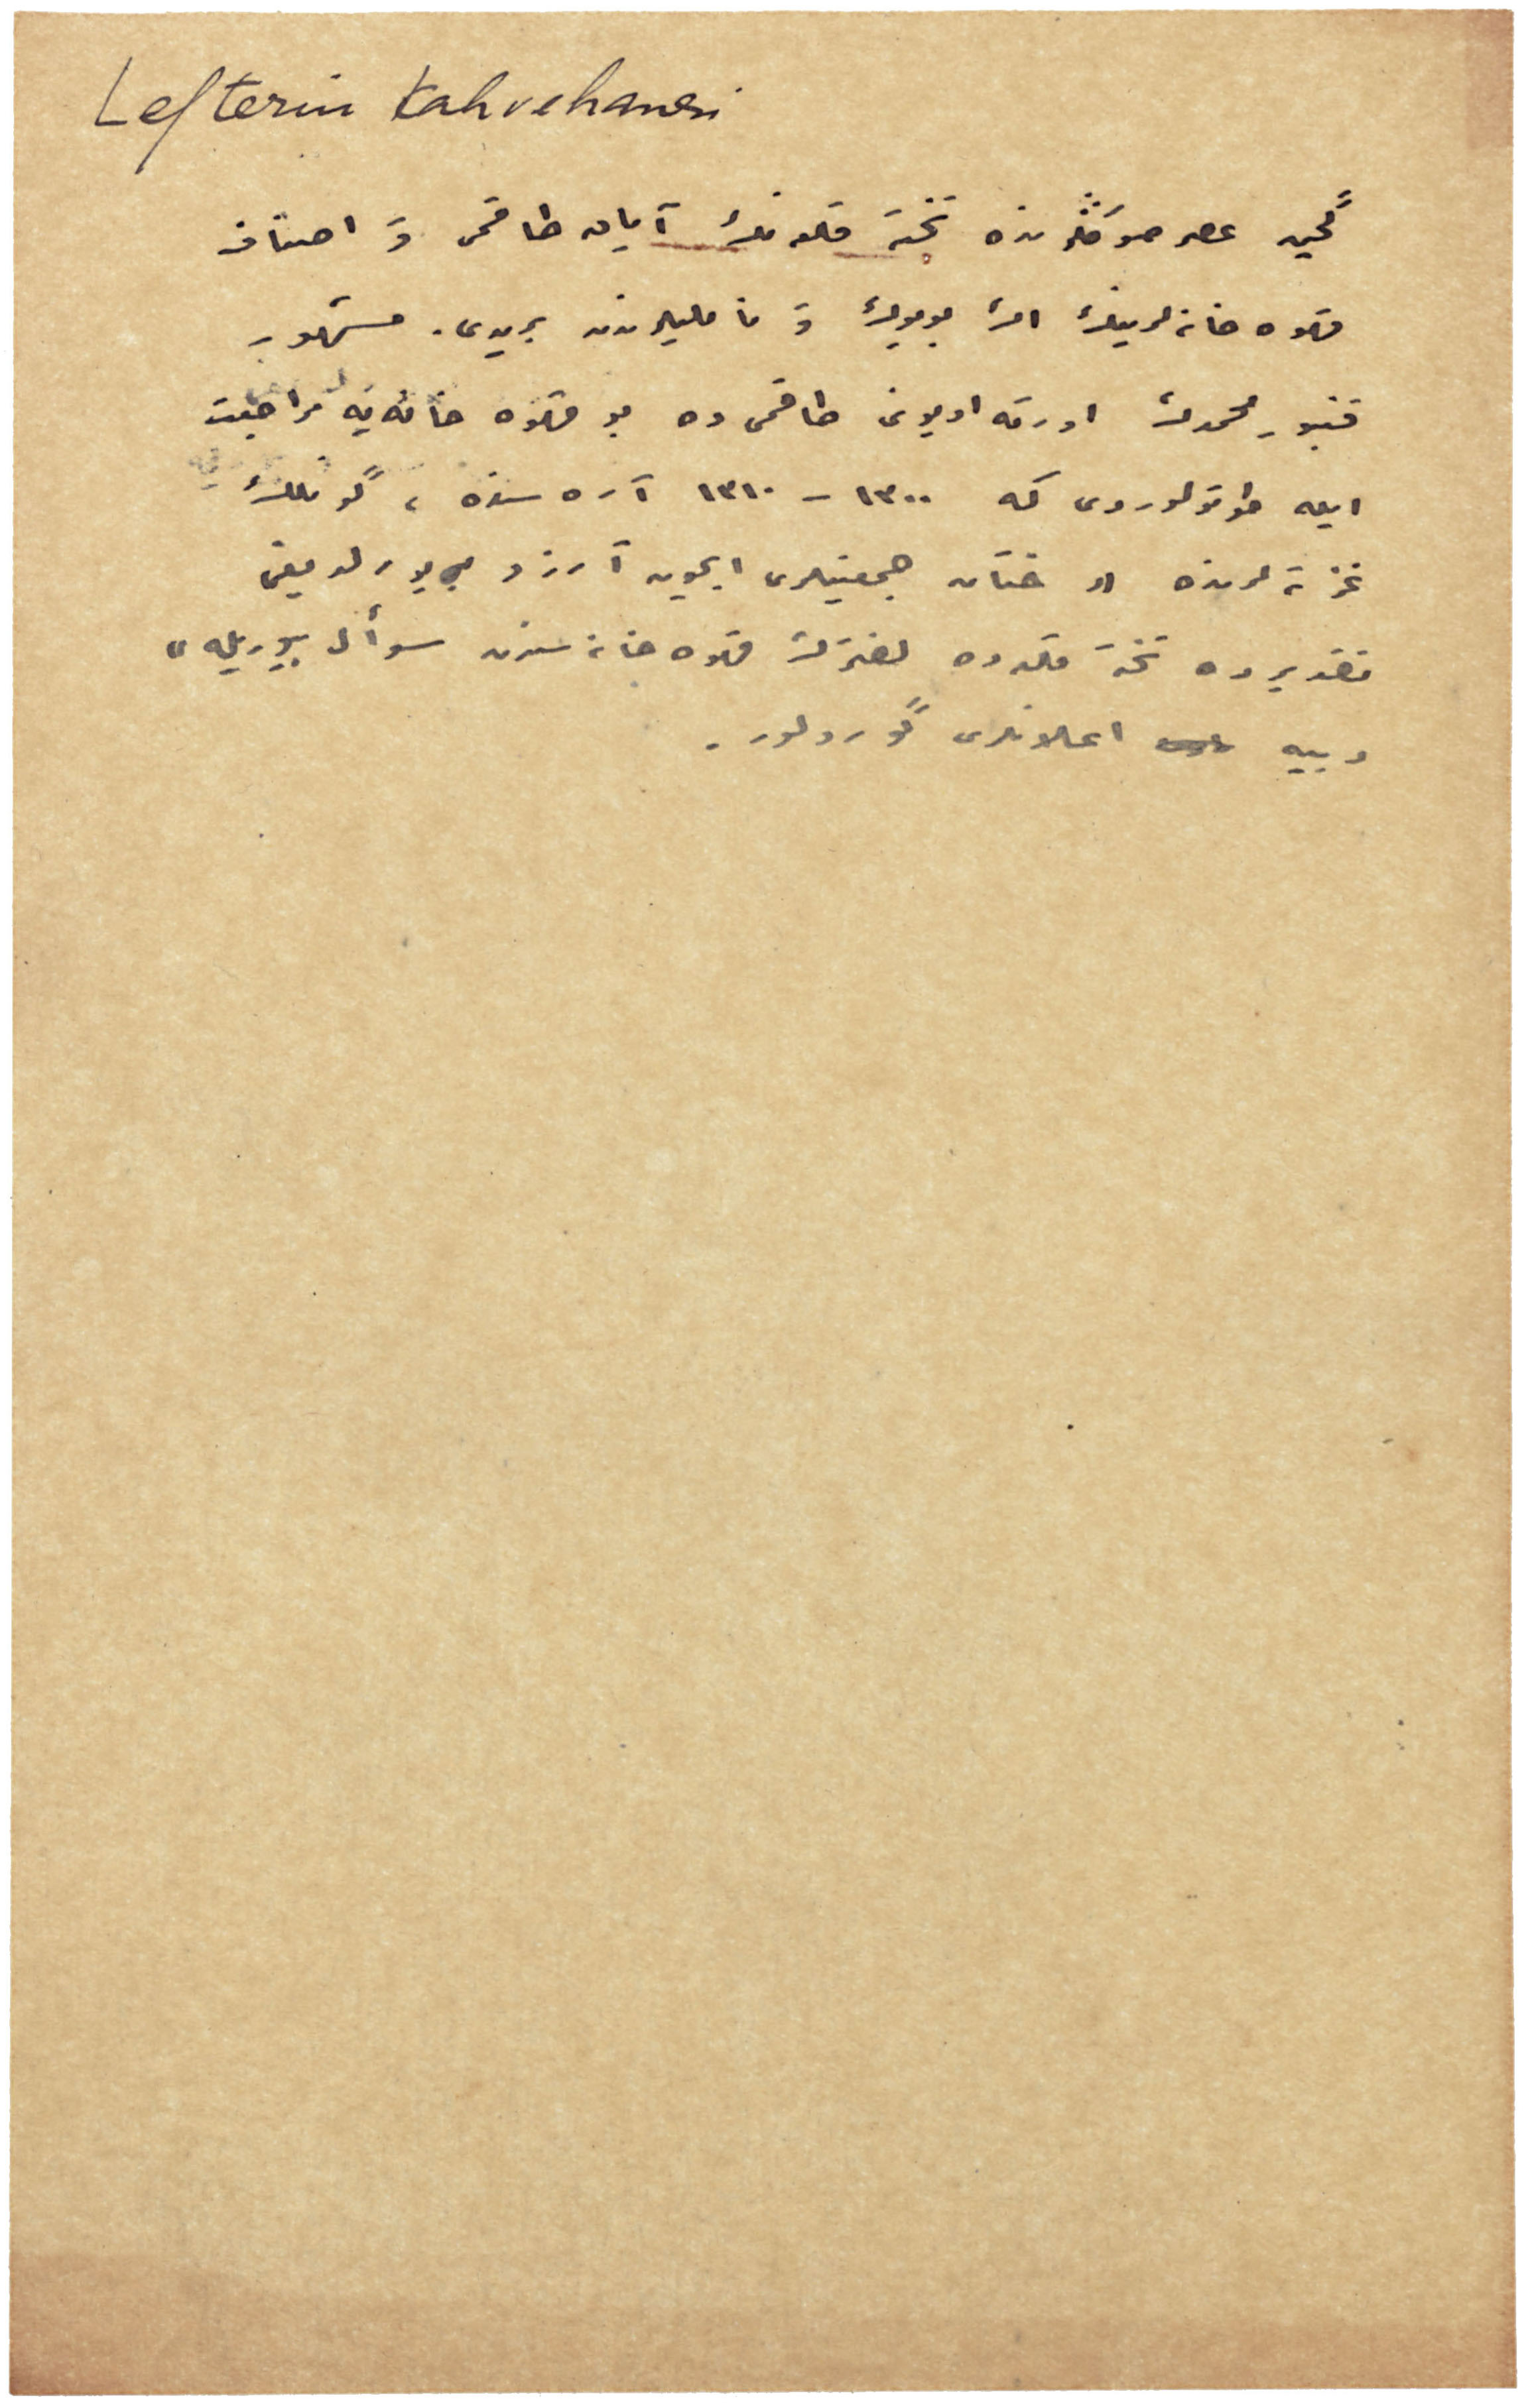 Lefterin kahvehanesi
گچن عصر صوڭلرنده تخته قلعه نڭ آیاق طاقمی و اصناف
قهوه خانه لرینڭ اڭ بویوڭ و ناملیلرندن بریدی. مشهور
قنبور محمدڭ اورته اویونی طاقمی ده بو قهوه خانه یه مراجعت
ایله طوتولوردی که ١٣٠٠ – ١٣١٠ آره سنده ، گونلك
غزته لرنده «ختان جمعیتلری ایچون آرزو بویورلدیغی
تقدیرده تخته قلعه ده لفترڭ قهوه خانه سندن سوأل بیوریله»
دییه اعلانلری گورولور.